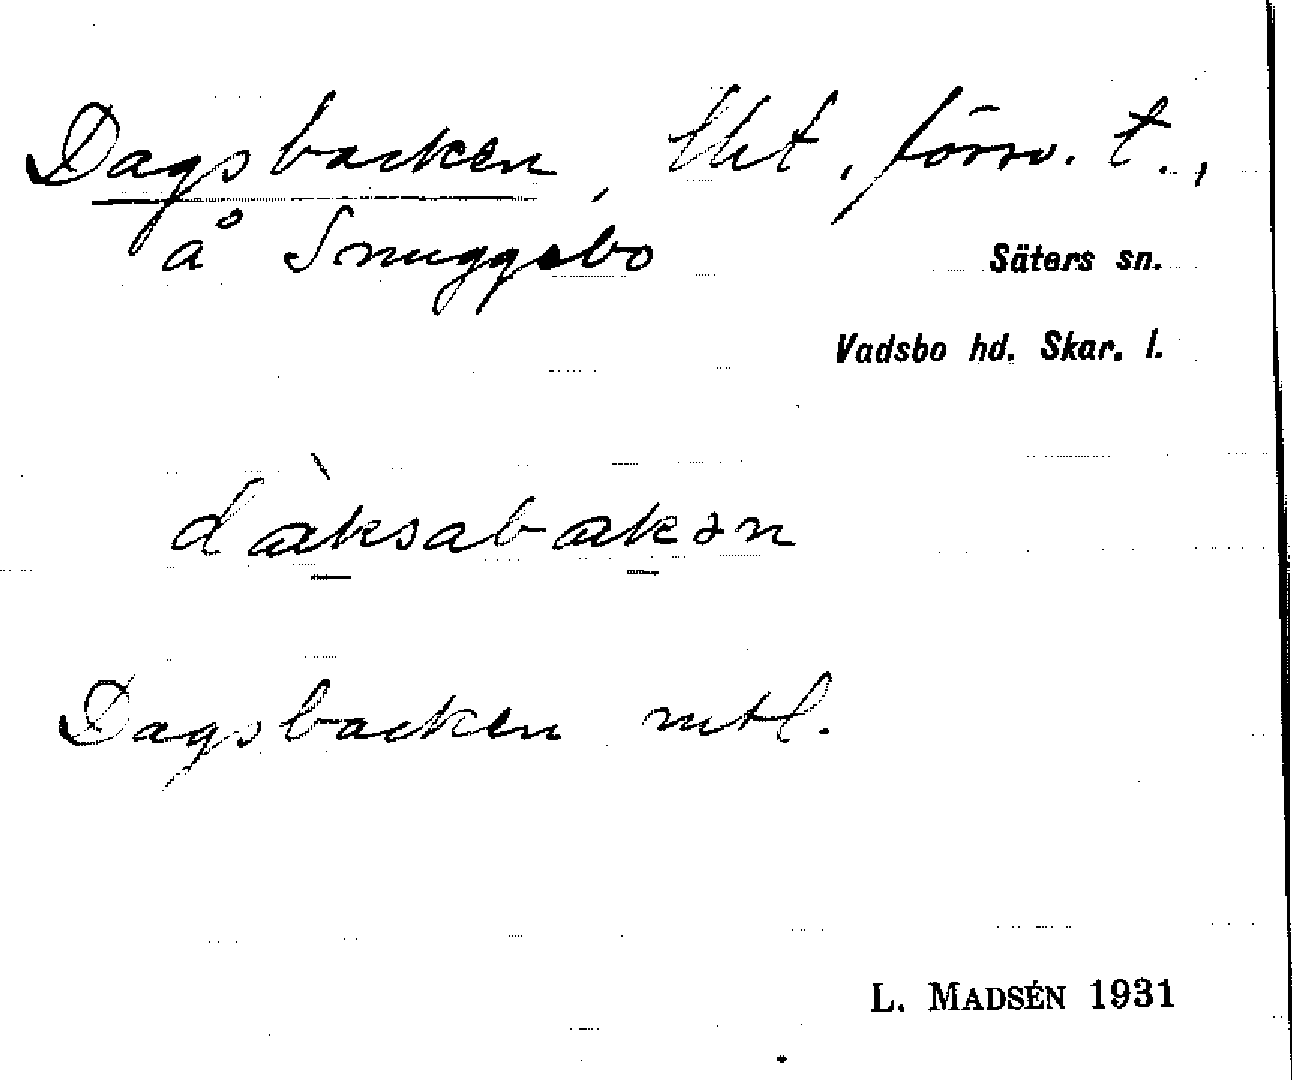 Dagsbacken, lht, försv. t.,
å Snuggebo
Säters sn.
Vadsbo hd. Skar. l.
dàksabakən
Dagsbacken mtl.
L. MADSÉN 1931